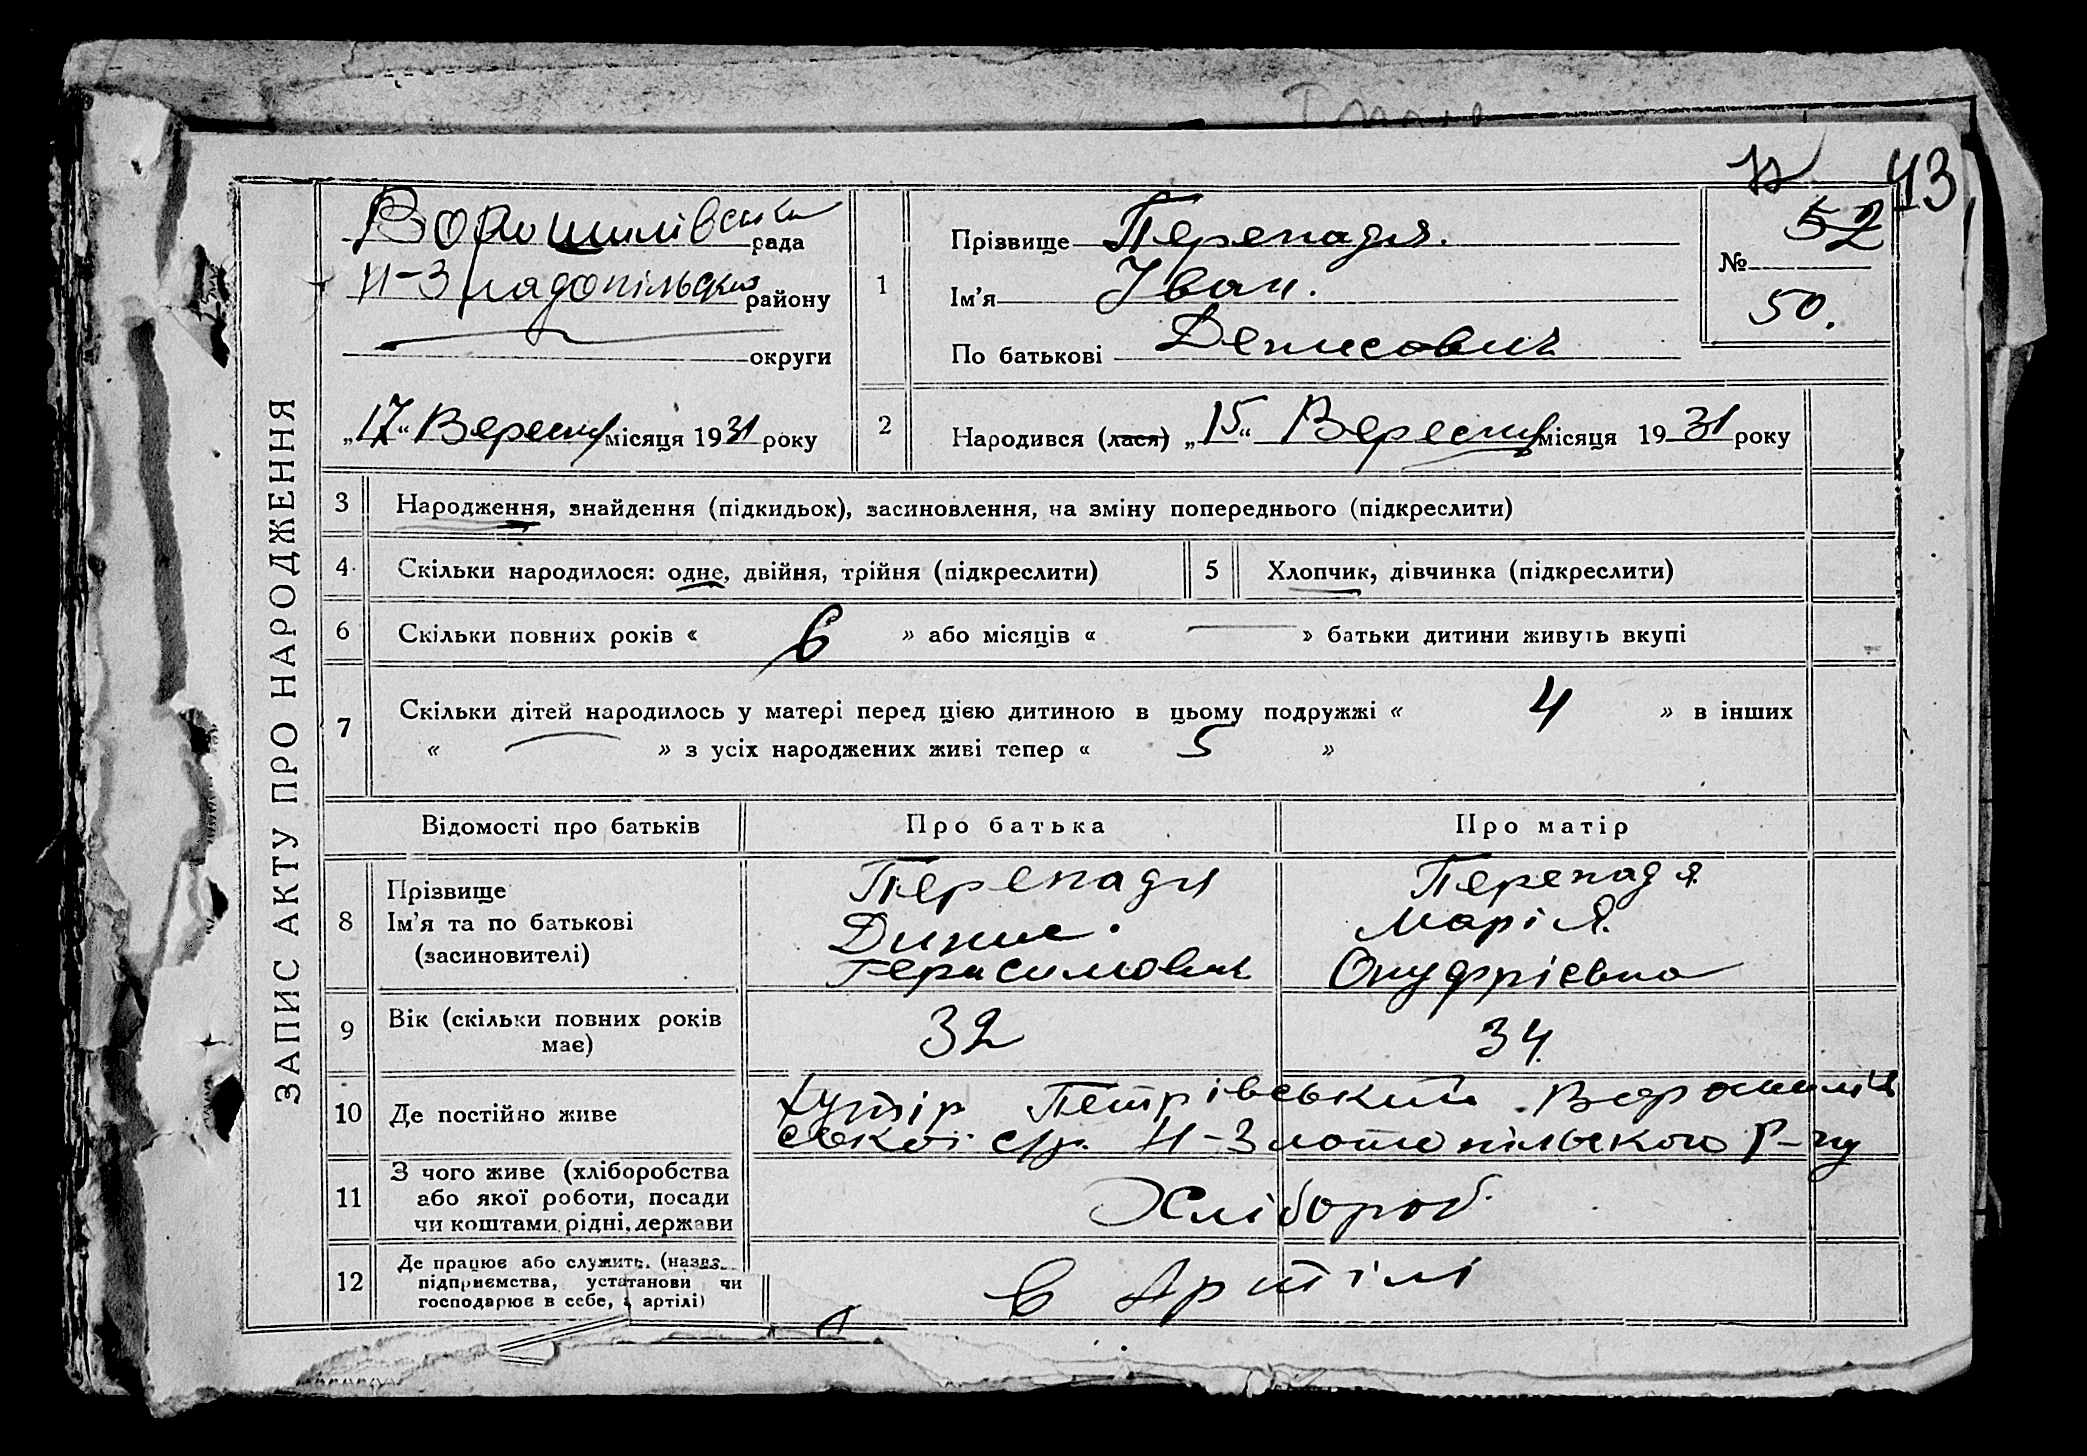 43
ЗАПИС АКТУ ПРО НАРОДЖЕННЯ
Ворошилівська рада
Н-Златопільськ району
округи
„17“ Вересня місяця 1931 року
1
Прізвище Перепадя.
Ім’я Іван.
По батькові Денисович
52
№
50.
2
Народився (лася) „15“ Вересня місяця 1931 року
3 Народження, знайдення (підкидьок), засиновлення, на зміну попереднього (підкреслити)
4 Скільки народилося: одне, двійня, трійня (підкреслити)
5 Хлопчик, дівчинка (підкреслити)
6 Скільки повних років « 6 » або місяців « — » батьки дитини живуть вкупі
7 Скільки дітей народилось у матері перед цією дитиною в цьому подружжі « 4 » в інших
« — » з усіх народжених живі тепер « 5 »
Відомості про батьків Про батька Про матір
8
Прізвище
Ім’я та по батькові
(засиновителі)
Перепадя
Динис.
Герасимович
Перепадя
Марія.
Онуфрієвна
9 Вік (скільки повних років
має)
32
34.
10 Де постійно живе
Хутір Петрівський Ворошилів
ської с/р. Н-Злотопільского Р-ну
11
З чого живе (хліборобства
або якої роботи, посади
чи коштами рідні, держави
Хлібороб.
12
Де працює або служить (назва
підприємства, устатанови чи
господарює в себе, в артілі)
в Артілі